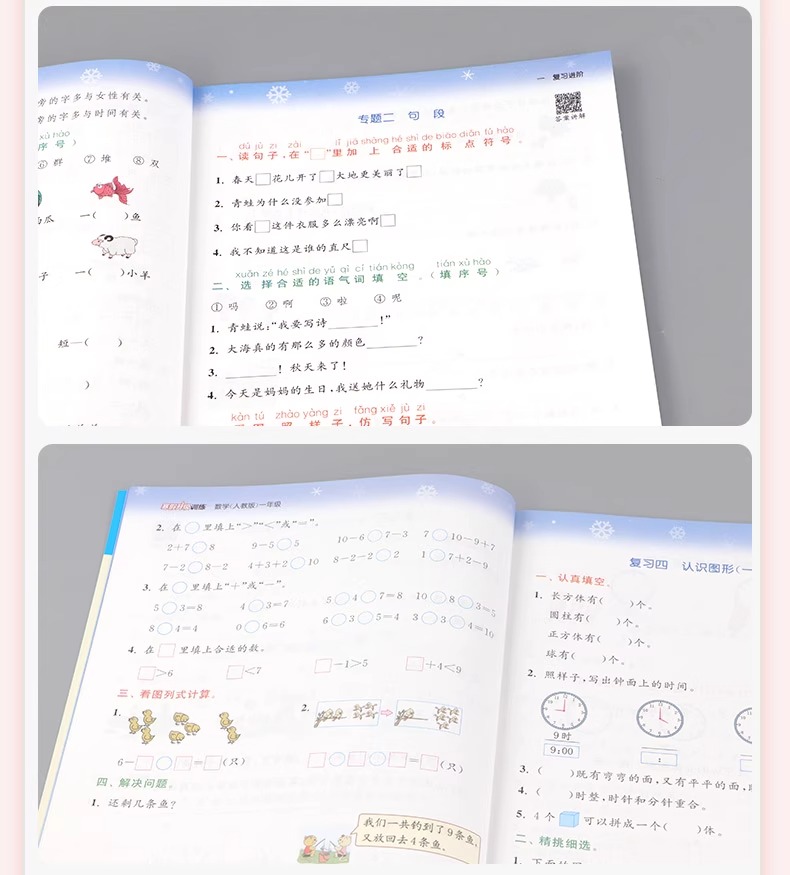 旁的字多与女性有关。
旁的字多与时间有关。
xù hào
序 号 )
⑥ 群 ⑦ 堆 ⑧ 双
瓜 一( )鱼
子 一( )小羊
短—( )
)
一 复习进阶
答案讲解
专题二 句 段
dú jù zi zài lǐ jiā shàng hé shì de biāo diǎn fú hào
一、读句子,在“□”里加 上 合适的 标 点 符 号 。
1. 春天□花儿开了□大地更美丽了□
2. 青蛙为什么没参加□
3. 你看□这件衣服多么漂亮啊□
4. 我不知道这是谁的直尺□
xuǎn zé hé shì de yǔ qì cí tián kòng tián xù hào
二、选 择合适的语气词 填 空 。(填 序 号)
① 吗 ② 啊 ③ 啦 ④ 呢
1. 青蛙说:“我要写诗______!”
2. 大海真的有那么多的颜色______?
3. ______! 秋天来了!
4. 今天是妈妈的生日,我送她什么礼物______?
kàn tú zhào yàng zi fǎng xiě jù zi
照 样 子,仿 写句子。
训练 数学(人教版)一年级
2. 在○里填上“>”“<”或“=”。
2+7○8 9-5○5 10-6○7-3 7○10-9+7
7-2○8-2 4+3+2○10 8-2-2○2 1○7+2-9
3. 在○里填上“+”或“-”。
5○3=8 4○3=7 5○4○7=8 10○8○3=5
8○4=4 0○6=6 6○3○5=4 3○3○4=10
4. 在□里填上合适的数。
□>6 □<7 □-1>5 □+4<9
三、看图列式计算。
1. 2.
6-□○□=□(只) □○□○□=□(只)
四、解决问题。
1. 还剩几条鱼?
我们一共钓到了9条鱼,
又放回去4条鱼。
复习四 认识图形(一
一、认真填空。
1. 长方体有( )个。
圆柱有( )个。
正方体有( )个。
球有( )个。
2. 照样子,写出钟面上的时间。
9时
9:00
:
3. ( )既有弯弯的面,又有平平的面,
4. ( )时整,时针和分针重合。
5. 4个 可以拼成一个( )体。
二、精挑细选。